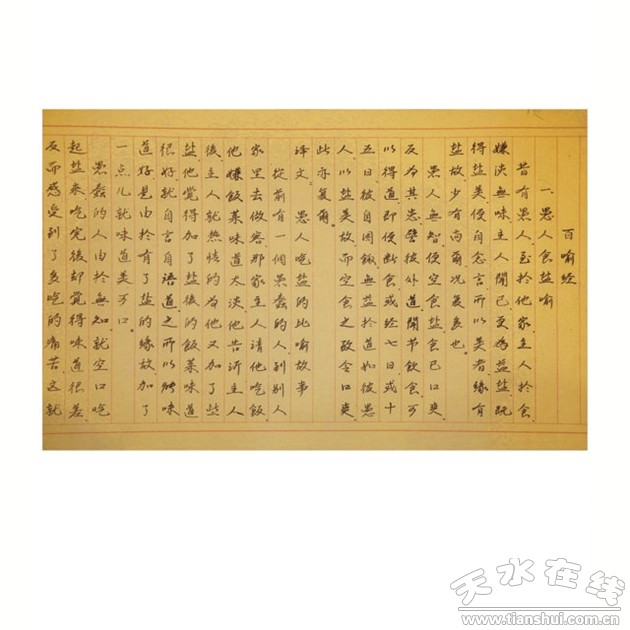 百喻经
一.愚人食盐喻
昔有愚人至於他家主人於食
嫌淡無味主人聞已更為益盐既
得盐美便自念言所以美者缘有
盐故少有尚爾况复多也
愚人無智便空食盐食已口爽
反为其患譬彼外道聞节饮食可
以得道即便断食或经七日或十
五日彼自困餓無益於道如彼愚
人以盐美故而空食之致令口爽
此亦复爾
译文 愚人吃盐的比喻故事
從前有一個愚蠢的人到别人
家里去做客那家主人请他吃飯
他嫌飯菜味道太淡他告訴主人
後主人就热情的为他又加了些
盐他覺得加了盐後的飯菜味道
很好就自言自語道之所以能味
道好是由於有了盐的缘故加了
一点儿就味道美可口
愚蠢的人由於無知就空口吃
起盐来吃完後却覺得味道很差
反而感受到了多吃的痛苦这就
天水在线
www.tianshui.com.cn